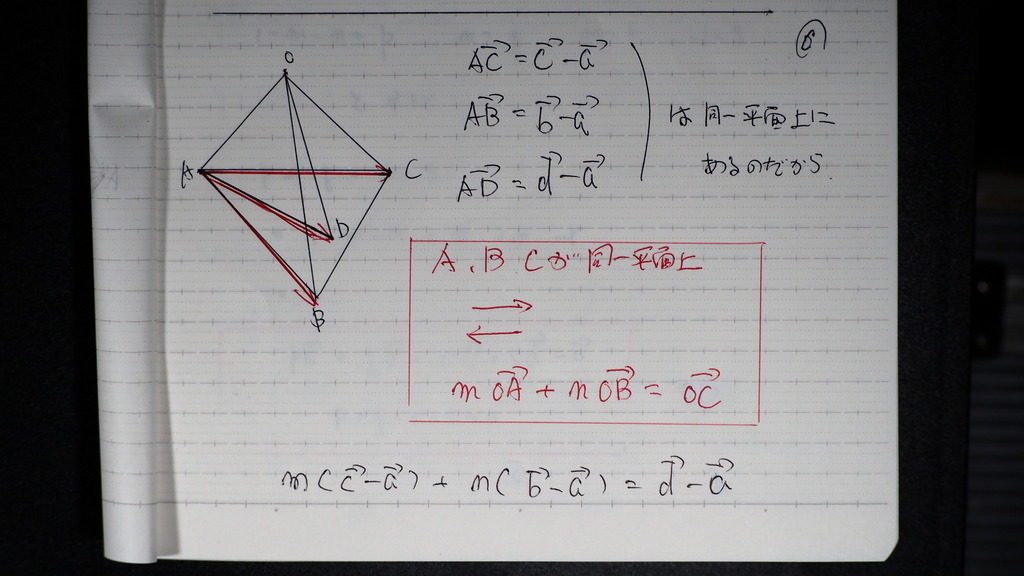 ⑥
O
A
C
D
B
AC→ = c→ - a→
AB→ = b→ - a→
AD→ = d→ - a→
は同一平面上に
あるのだから.
A、B Cが同一平面上
→
←
mOA→ + nOB→ = OC→
m(c→ - a→) + n(b→ - a→) = d→ - a→